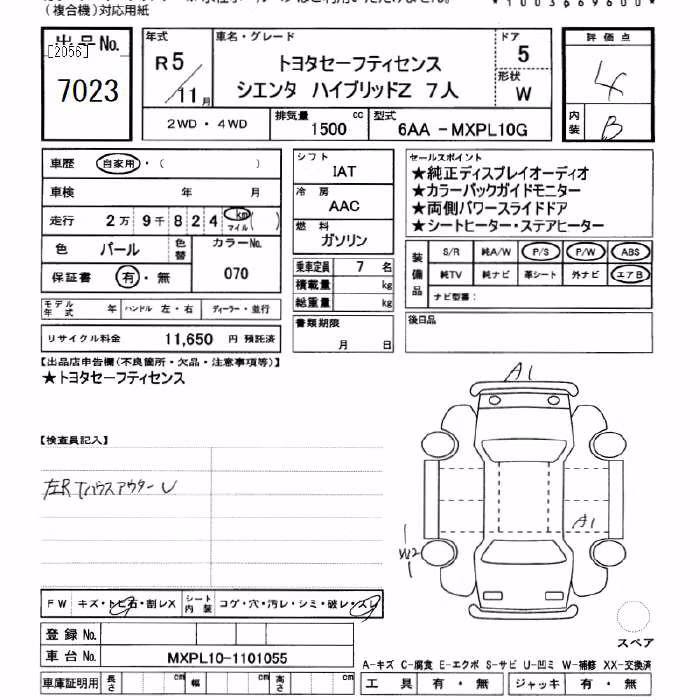 (複合機)対応用紙
出品No.
[2056]
7023
年式
R5/11月
車名・グレード
トヨタセーフティセンス
シエンタ ハイブリッドZ 7人
ドア
5
形状
W
2WD・4WD
排気量 1500 cc
型式 6AA -MXPL10G
評価点
4
内装 B
車歴 自家用・( )
車検 年 月
走行 2万 9千 8 2 4 km マイル ( )
色 パール 色替 カラーNo. 070
保証書 有・無
モデル年式 年 ハンドル 左・右 ディーラー・並行
リサイクル料金 11,650 円 預託済
シフト
IAT
冷房
AAC
燃料
ガソリン
乗車定員 7 名
積載量 kg
総重量 kg
書類期限
月 日
セールスポイント
★純正ディスプレイオーディオ
★カラーバックガイドモニター
★両側パワースライドドア
★シートヒーター・ステアヒーター
装備品 S/R 純A/W P/S P/W ABS
純TV 純ナビ 革シート 外ナビ エアB
ナビ型番:
後日品
【出品店申告欄(不良箇所・欠品・注意事項等)】
★トヨタセーフティセンス
【検査員記入】
左R Tハウスアウター U
A1
A1
W2
FW キズ・トビ石・割レX シート内装 コゲ・穴・汚レ・シミ・破レ・スレ
登録No.
車台No. MXPL10-1101055
車庫証明用 長さ cm 幅 cm 高さ cm
スペア
A-キズ C-腐食 E-エクボ S-サビ U-凹ミ W-補修 XX-交換済
工具 有・無 ジャッキ 有・無